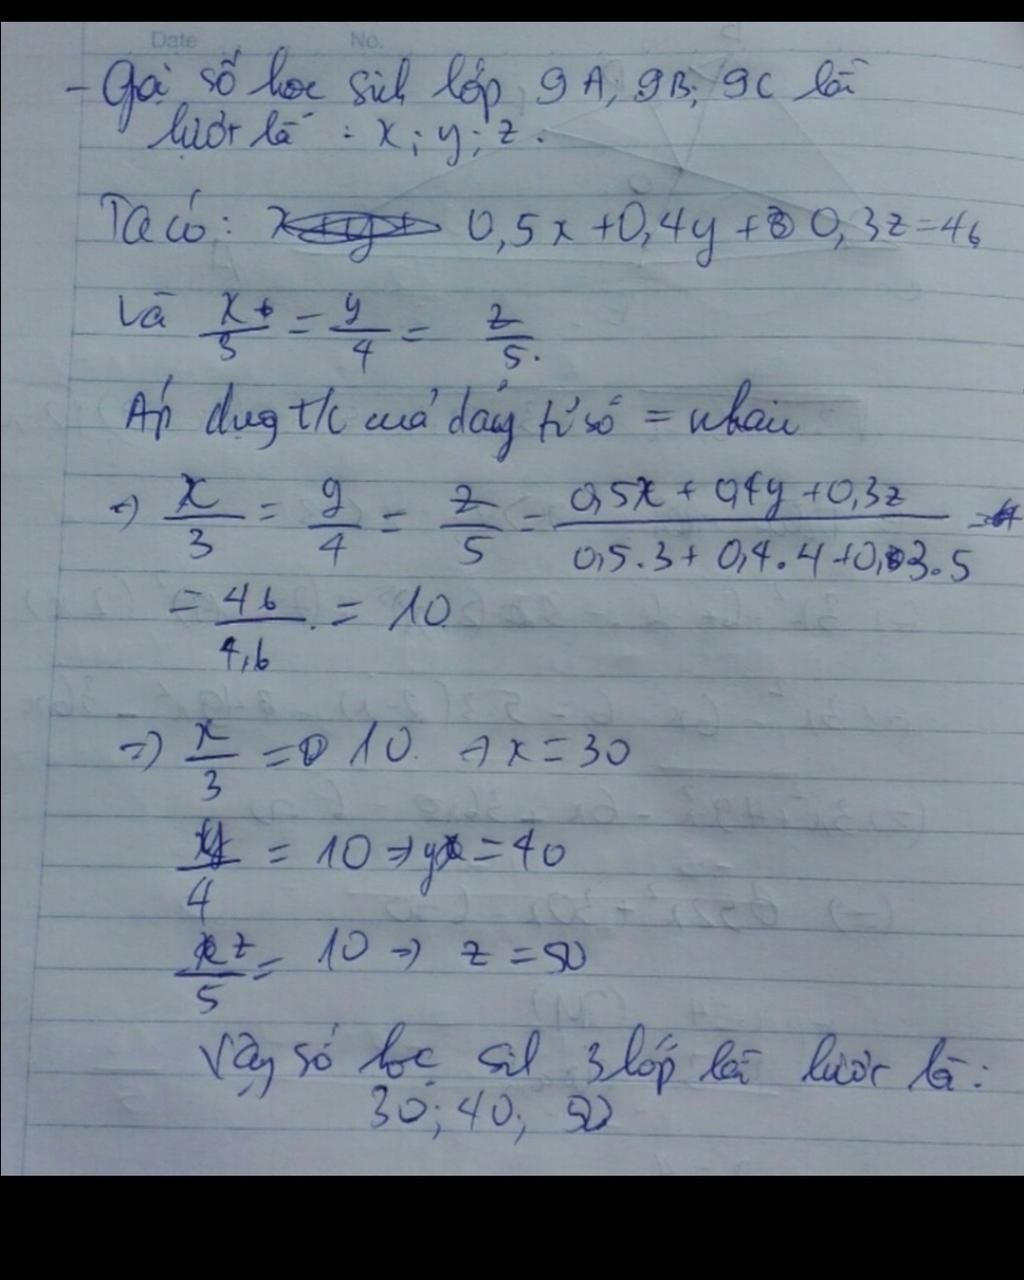 Date No.
- Gọi số học sinh lớp 9A; 9B; 9C lần
lượt là : x; y; z.
Ta có: 0,5x + 0,4y + 0,3z = 46
Và x/3 = y/4 = z/5.
Áp dụng t/c của dãy tỉ số = nhau
=> x/3 = y/4 = z/5 = (0,5x + 0,4y + 0,3z)/(0,5.3 + 0,4.4 + 0,3.5)
= 46/4,6 = 10
=> x/3 = 10. => x = 30
y/4 = 10 => y = 40
z/5 = 10 => z = 50
Vậy số học sinh 3 lớp lần lượt là:
30; 40; 50